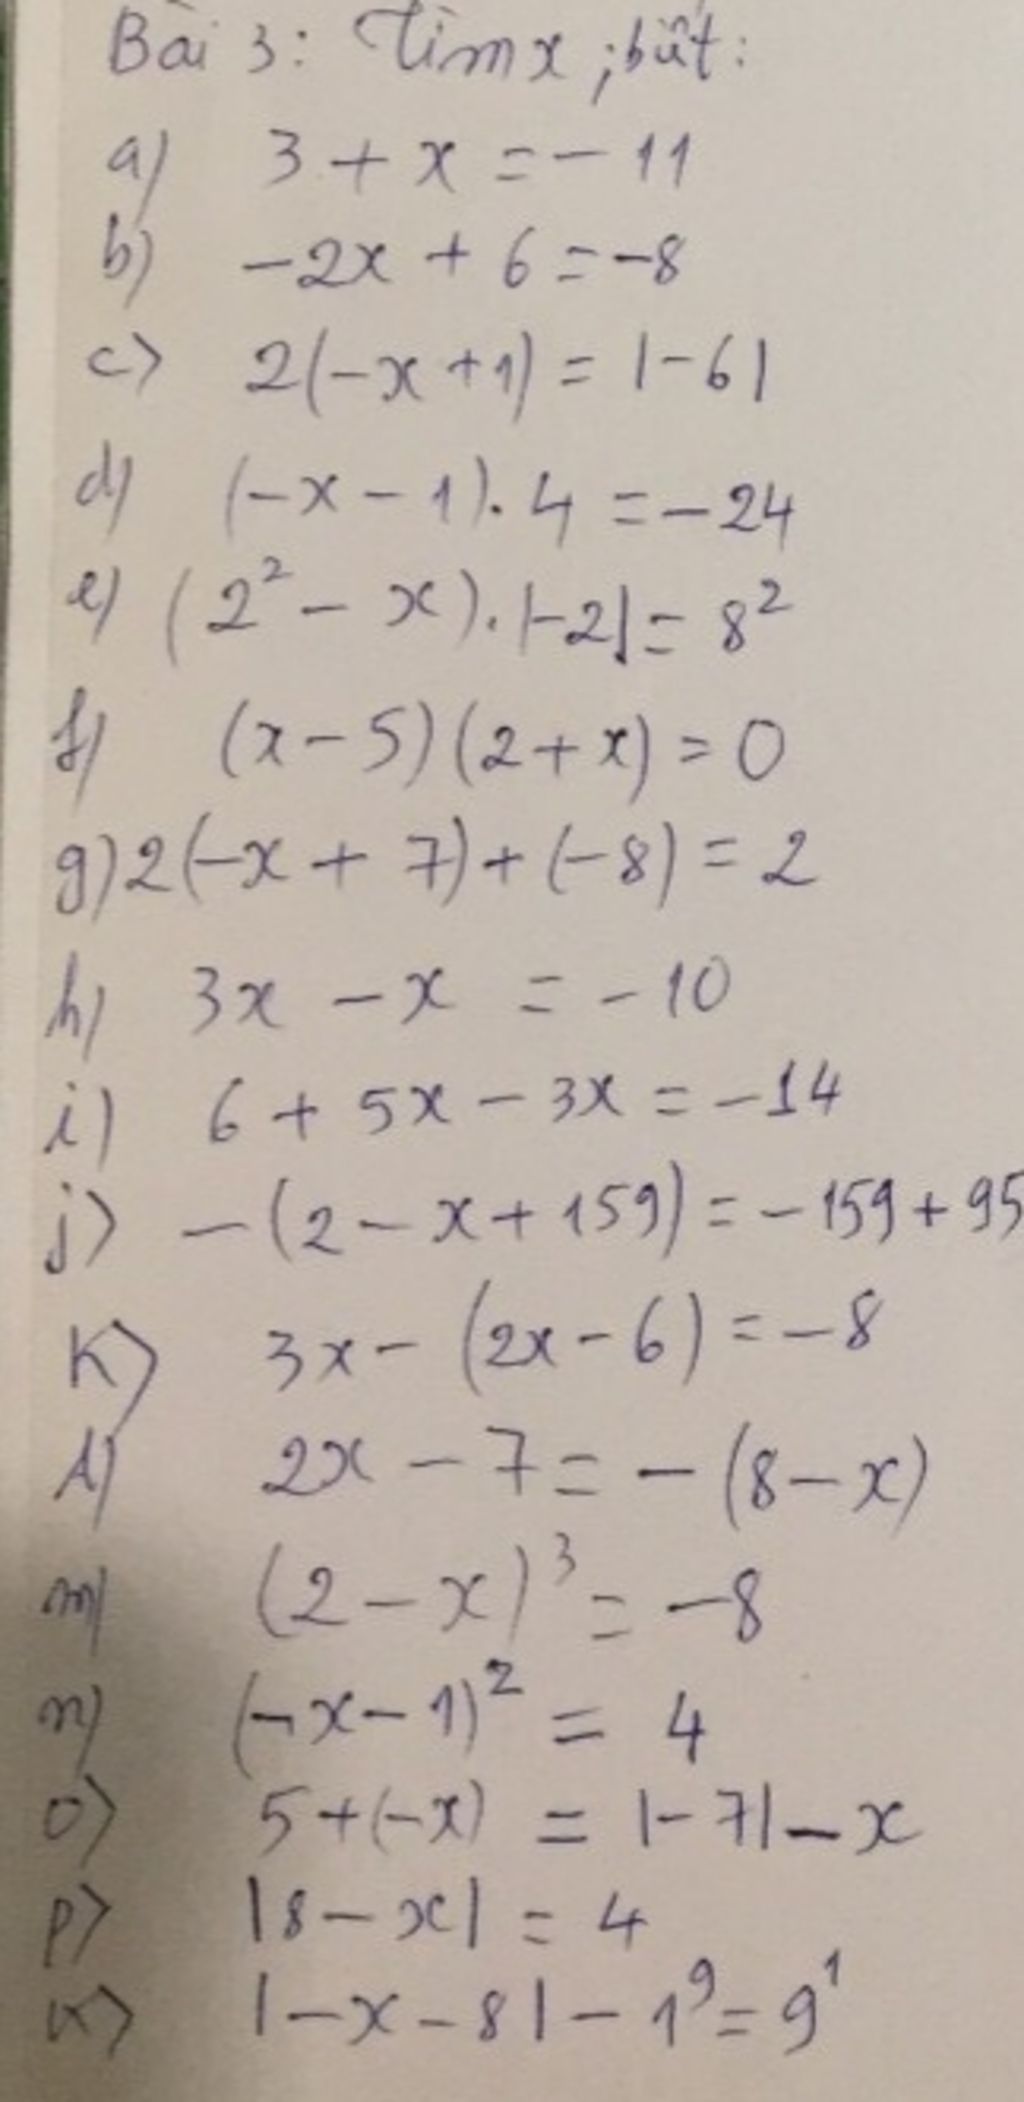 Bài 3: Tìm x, biết:
a) 3 + x = - 11
b) -2x + 6 = -8
c) 2(-x + 1) = |-6|
d) (-x - 1). 4 = -24
e) (2² - x). |-2| = 8²
f) (x - 5)(2 + x) = 0
g) 2(-x + 7) + (-8) = 2
h) 3x - x = - 10
i) 6 + 5x - 3x = -14
j) -(2 - x + 159) = - 159 + 95
k) 3x - (2x - 6) = - 8
l) 2x - 7 = - (8 - x)
m) (2 - x)³ = -8
n) (-x - 1)² = 4
o) 5 + (-x) = |-7| - x
p) |8 - x| = 4
u) |-x - 8| - 1⁹ = 9¹